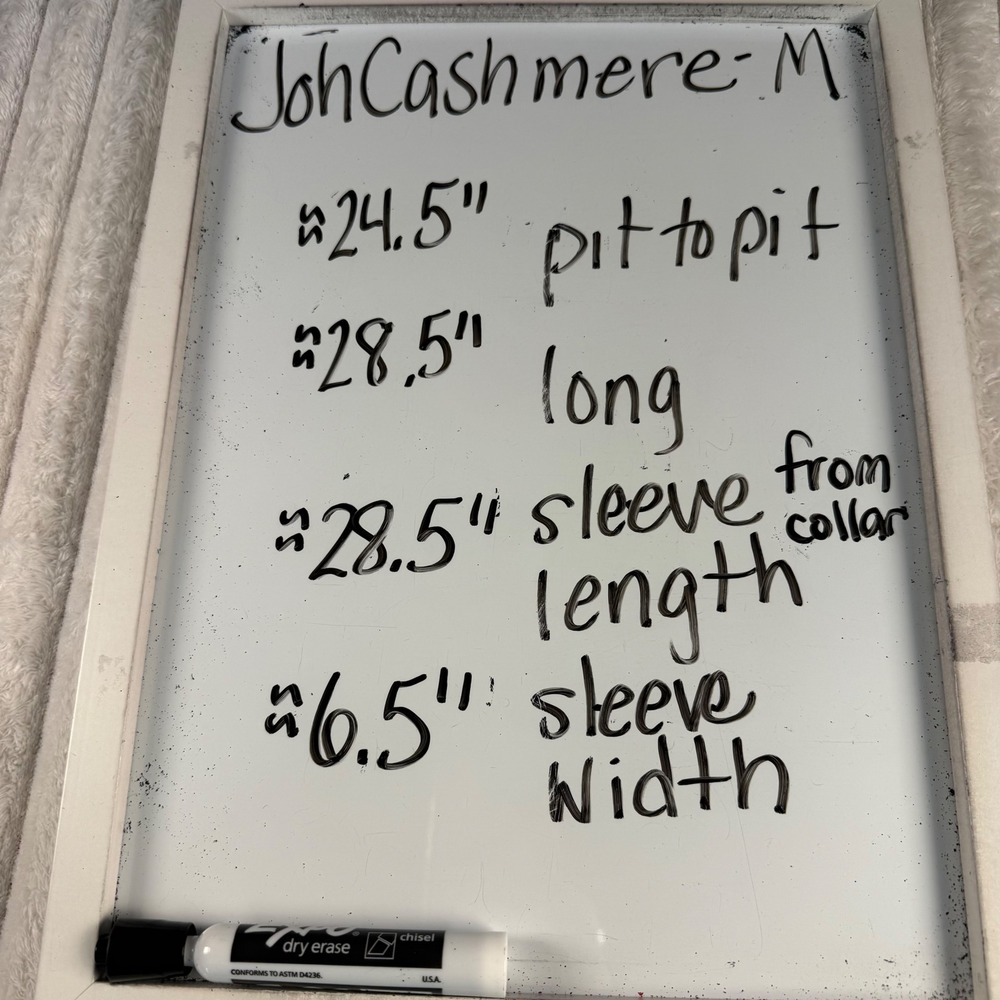 JohCashmere- M
≈24.5" pit to pit
≈28.5" long
≈28.5" sleeve length from collar
≈6.5" sleeve width
dry erase
chisel
CONFORMS TO ASTM D4236.
U.S.A.